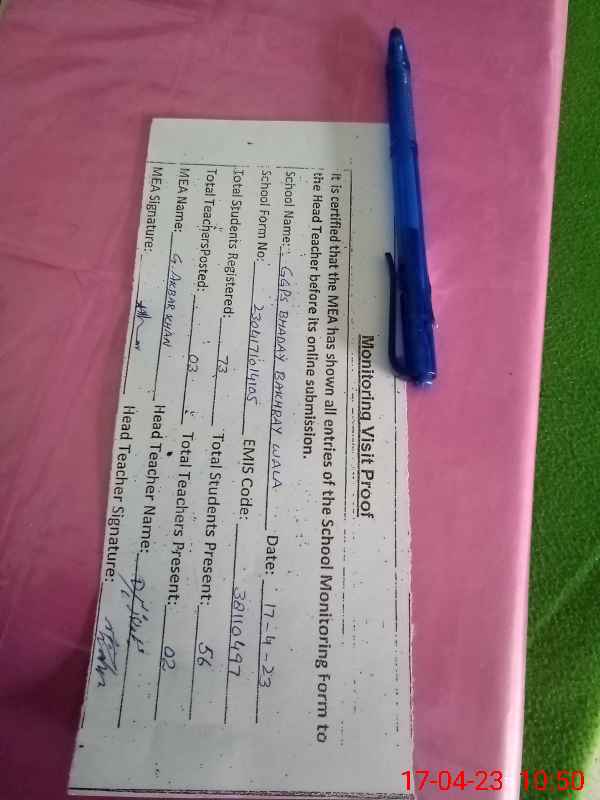 Monitoring Visit Proof
It is certified that the MEA has shown all entries of the School Monitoring Form to
the Head Teacher before its online submission.
School Name: GGPS BHADAY BAKHRAY WALA Date: 17-4-23
School Form No: 2304171014105 EMIS Code: 38110497
Total Students Registered: 73 Total Students Present: 56
Total TeachersPosted: 03 Total Teachers Present: 02
MEA Name: G. AKBAR KHAN Head Teacher Name:
MEA Signature: Head Teacher Signature:
17-04-23 10:50